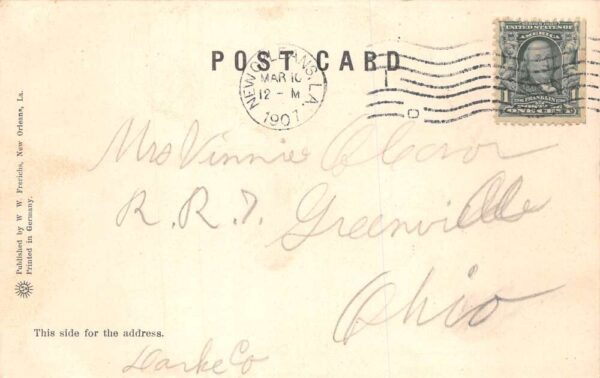 POST CARD
NEW ORLEANS, LA.
MAR 10
12 - M
1907
UNITED STATES OF AMERICA
ONE CENT
Mrs Vinnie
R. R. 7. Greenville
Ohio
Darke Co
This side for the address.
Published by W W Frerichs, New Orleans, La.
Printed in Germany.